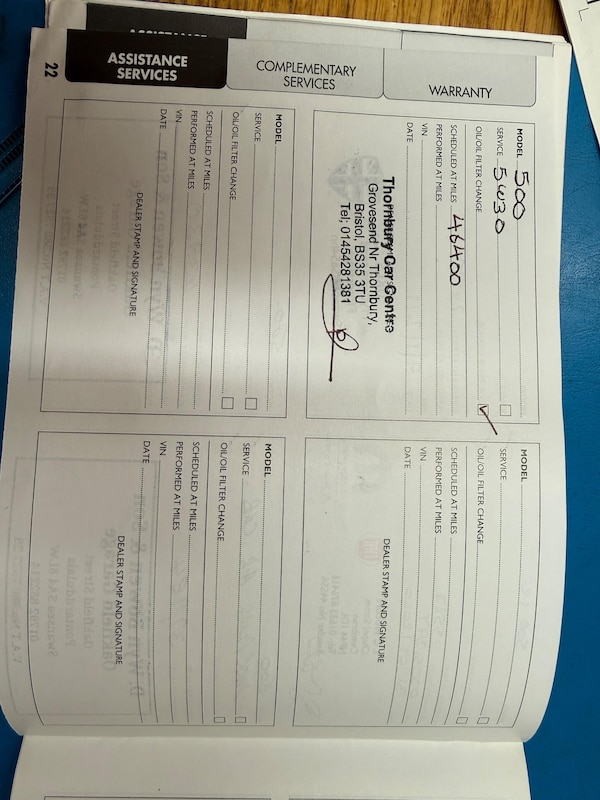 ASSISTANCE
SERVICES
COMPLEMENTARY
SERVICES
WARRANTY
22
MODEL 500
SERVICE 5W30
OIL/OIL FILTER CHANGE
SCHEDULED AT MILES 46400
PERFORMED AT MILES
VIN
DATE
Thornbury Car Centre
Grovesend Nr Thornbury,
Bristol, BS35 3TU
Tel; 01454281381
MODEL
SERVICE
OIL/OIL FILTER CHANGE
SCHEDULED AT MILES
PERFORMED AT MILES
VIN
DATE
DEALER STAMP AND SIGNATURE
MODEL
SERVICE
OIL/OIL FILTER CHANGE
SCHEDULED AT MILES
PERFORMED AT MILES
VIN
DATE
DEALER STAMP AND SIGNATURE
MODEL
SERVICE
OIL/OIL FILTER CHANGE
SCHEDULED AT MILES
PERFORMED AT MILES
VIN
DATE
DEALER STAMP AND SIGNATURE